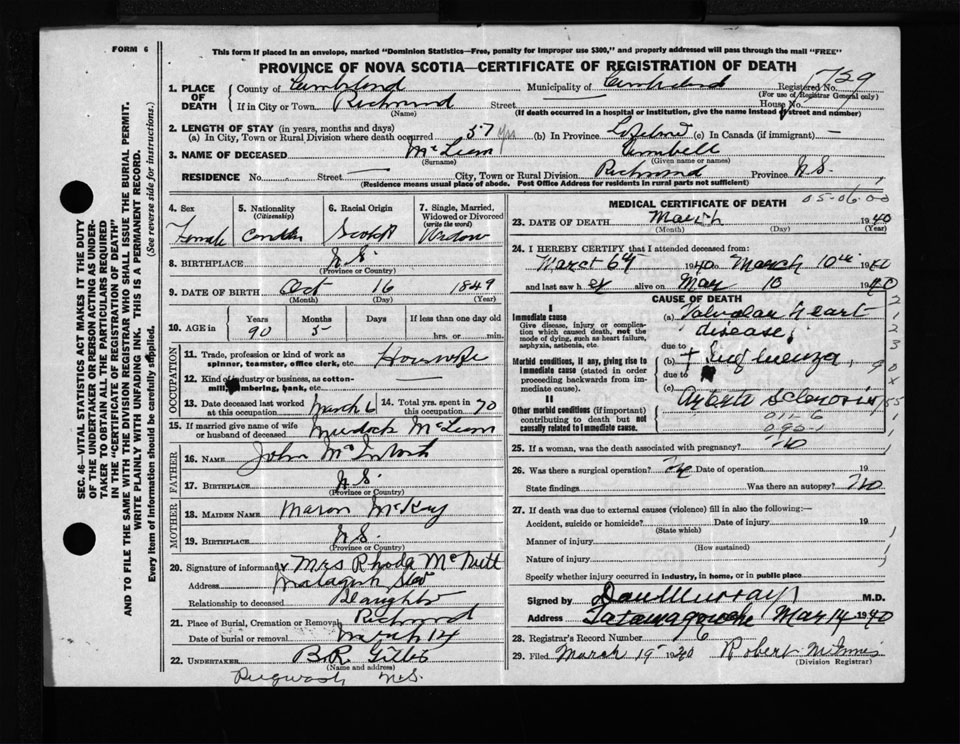 FORM 6
This form if placed in an envelope, marked "Dominion Statistics—Free, penalty for improper use $300," and properly addressed will pass through the mail "FREE"
PROVINCE OF NOVA SCOTIA—CERTIFICATE OF REGISTRATION OF DEATH
SEC. 46—VITAL STATISTICS ACT MAKES IT THE DUTY
OF THE UNDERTAKER OR PERSON ACTING AS UNDER-
TAKER TO OBTAIN ALL THE PARTICULARS REQUIRED
IN THE "CERTIFICATE OF REGISTRATION OF DEATH"
AND TO FILE THE SAME WITH THE DIVISION REGISTRAR WHO SHALL ISSUE THE BURIAL PERMIT.
WRITE PLAINLY WITH UNFADING INK. THIS IS A PERMANENT RECORD.
Every item of information should be carefully supplied. (See reverse side for instructions.)
1. PLACE OF DEATH County of Cumberland Municipality of Cumberland Registered No. 1729
(For use of Registrar General only)
If in City or Town Richmond Street House No.
(Name) (If death occurred in a hospital or institution, give the name instead of street and number)
2. LENGTH OF STAY (in years, months and days)
(a) In City, Town or Rural Division where death occurred 57 yrs (b) In Province (c) In Canada (if immigrant) —
3. NAME OF DECEASED McLean
(Surname) (Given name or names)
RESIDENCE No. Street — City, Town or Rural Division Richmond Province N.S.
(Residence means usual place of abode. Post Office Address for residents in rural parts not sufficient)
4. Sex Female
5. Nationality (Citizenship)
6. Racial Origin Scotch
7. Single, Married, Widowed or Divorced (write the word) Widow
8. BIRTHPLACE N.S.
(Province or Country)
9. DATE OF BIRTH Oct 16 1849
(Month) (Day) (Year)
10. AGE in Years 90 Months 5 Days If less than one day old hrs. or min.
OCCUPATION
11. Trade, profession or kind of work as spinner, teamster, office clerk, etc. Housewife
12. Kind of industry or business, as cotton-mill, lumbering, bank, etc. —
13. Date deceased last worked at this occupation March 6 14. Total yrs. spent in this occupation 70
15. If married give name of wife or husband of deceased Murdock McLean
FATHER
16. NAME John McIntosh
17. BIRTHPLACE N.S.
(Province or Country)
MOTHER
18. MAIDEN NAME McKay
19. BIRTHPLACE N.S.
(Province or Country)
20. Signature of informant Mrs Rhoda McNutt
Address Malagash
Relationship to deceased Daughter
21. Place of Burial, Cremation or Removal Richmond
Date of burial or removal March 14
22. UNDERTAKER B.R.
(Name and address)
Pugwash N.S.
MEDICAL CERTIFICATE OF DEATH
05-06-00
23. DATE OF DEATH March 1940
(Month) (Day) (Year)
24. I HEREBY CERTIFY that I attended deceased from:
March 6th 1940 to March 10th 1940
and last saw her alive on Mar 10 1940
CAUSE OF DEATH
I
Immediate cause
Give disease, injury or complication which caused death, not the mode of dying, such as heart failure, asphyxia, asthenia, etc.
(a) Valvular Heart disease
due to
Morbid conditions, if any, giving rise to immediate cause (stated in order proceeding backwards from immediate cause).
(b) + Influenza
due to
(c)
II
Other morbid conditions (if important) contributing to death but not causally related to immediate cause.
Sclerosis
25. If a woman, was the death associated with pregnancy? No
26. Was there a surgical operation? No Date of operation 19
State findings Was there an autopsy? No
27. If death was due to external causes (violence) fill in also the following:—
Accident, suicide or homicide? Date of injury 19
(State which)
Manner of injury
(How sustained)
Nature of injury
Specify whether injury occurred in industry, in home, or in public place
Signed by Dan Murray M.D.
Address Tatamagouche Mar 14 1940
28. Registrar's Record Number 6
29. Filed March 19 1940 Robert McInnes
(Division Registrar)